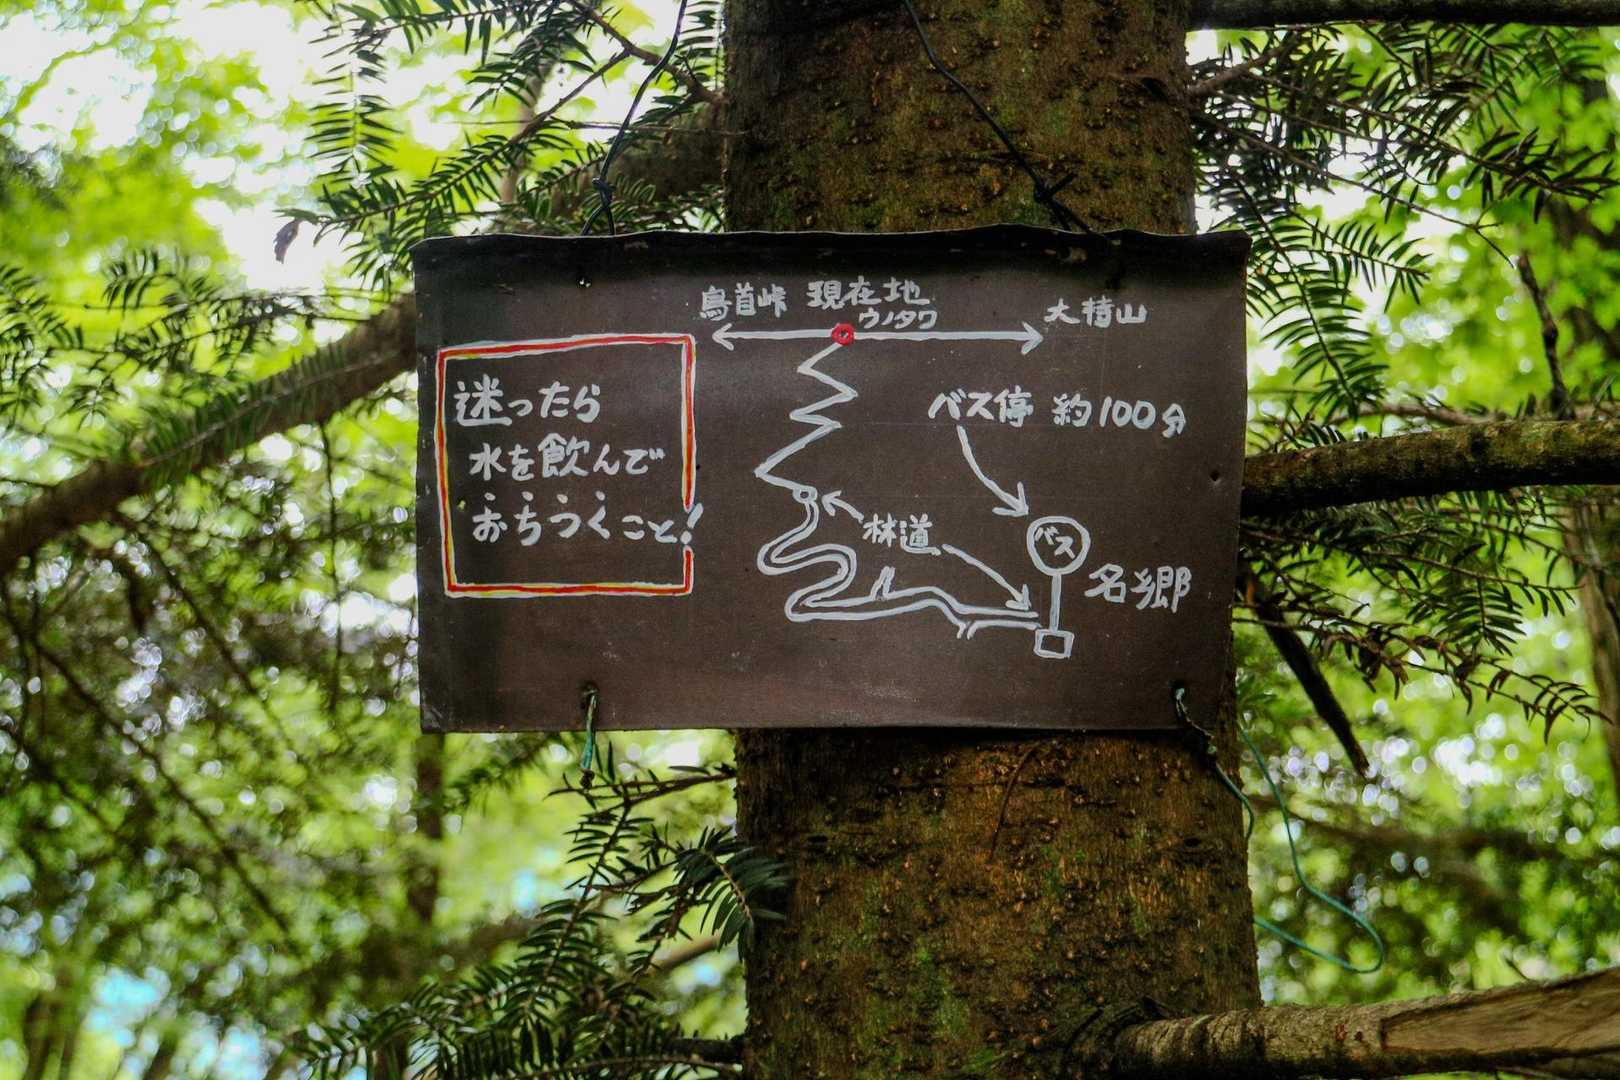 鳥首峠 現在地 大持山
ウノタワ
迷ったら
水を飲んで
おちつくこと!
バス停 約100分
林道
バス
名郷